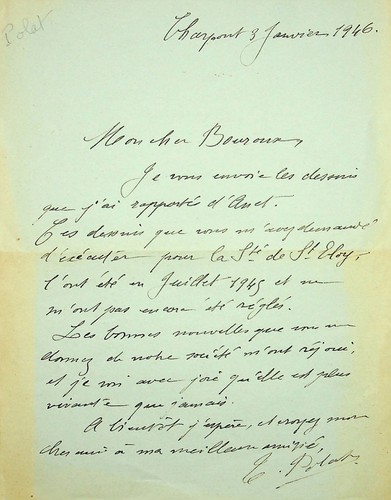 Polat
Charpont 3 Janvier 1946.
Mon cher Bouroux,
Je vous envoie les dessins
que j'ai rapportés d'Anet.
Ces dessins que vous m'avez demandé
d'exécuter pour la Sté de St Eloy,
l'ont été en Juillet 1945 et ne
m'ont pas encore été réglés.
Les bonnes nouvelles que vous me
donnez de notre société m'ont réjoui,
et je vois avec joie qu'elle est plus
vivante que jamais.
A bientôt j'espère, et croyez mon
cher ami à ma meilleure amitié
Polat